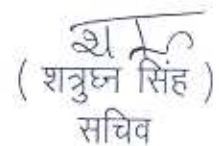 ( शत्रुघ्न सिंह )
सचिव